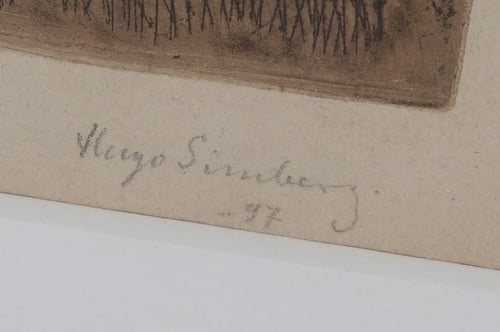 Hugo Simberg.
-97